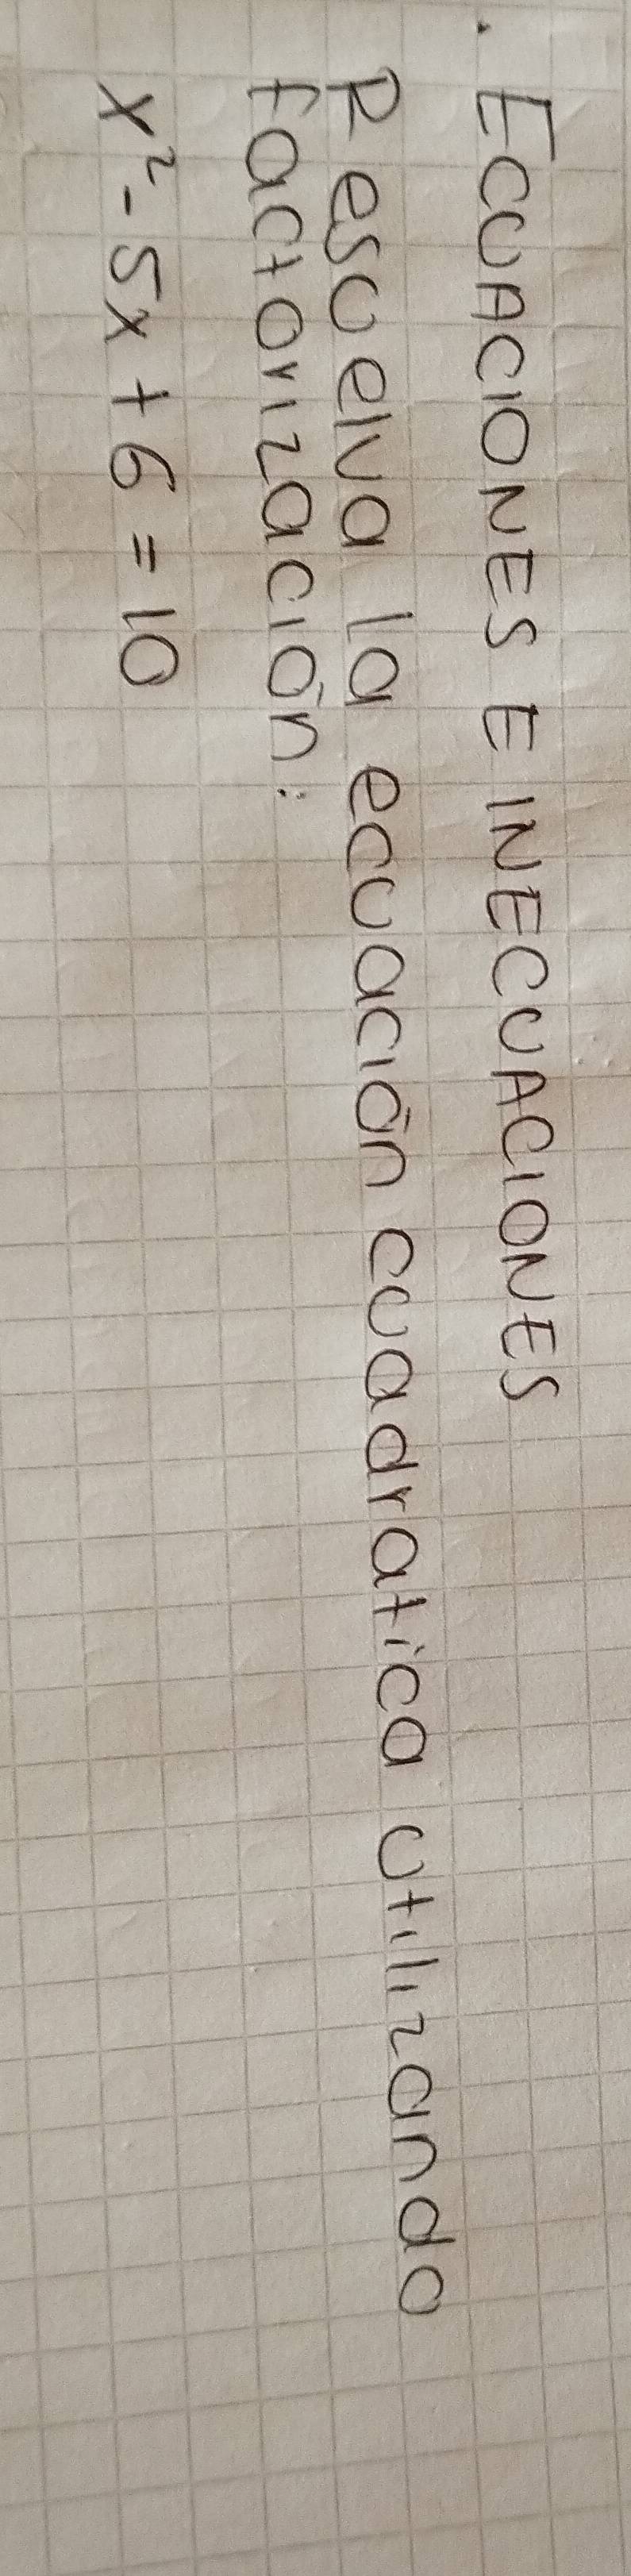 . ECUACIONES E INECUACIONES
Resuelva la ecuación cuadratica utilizando
factorización:
x² - 5x + 6 = 10